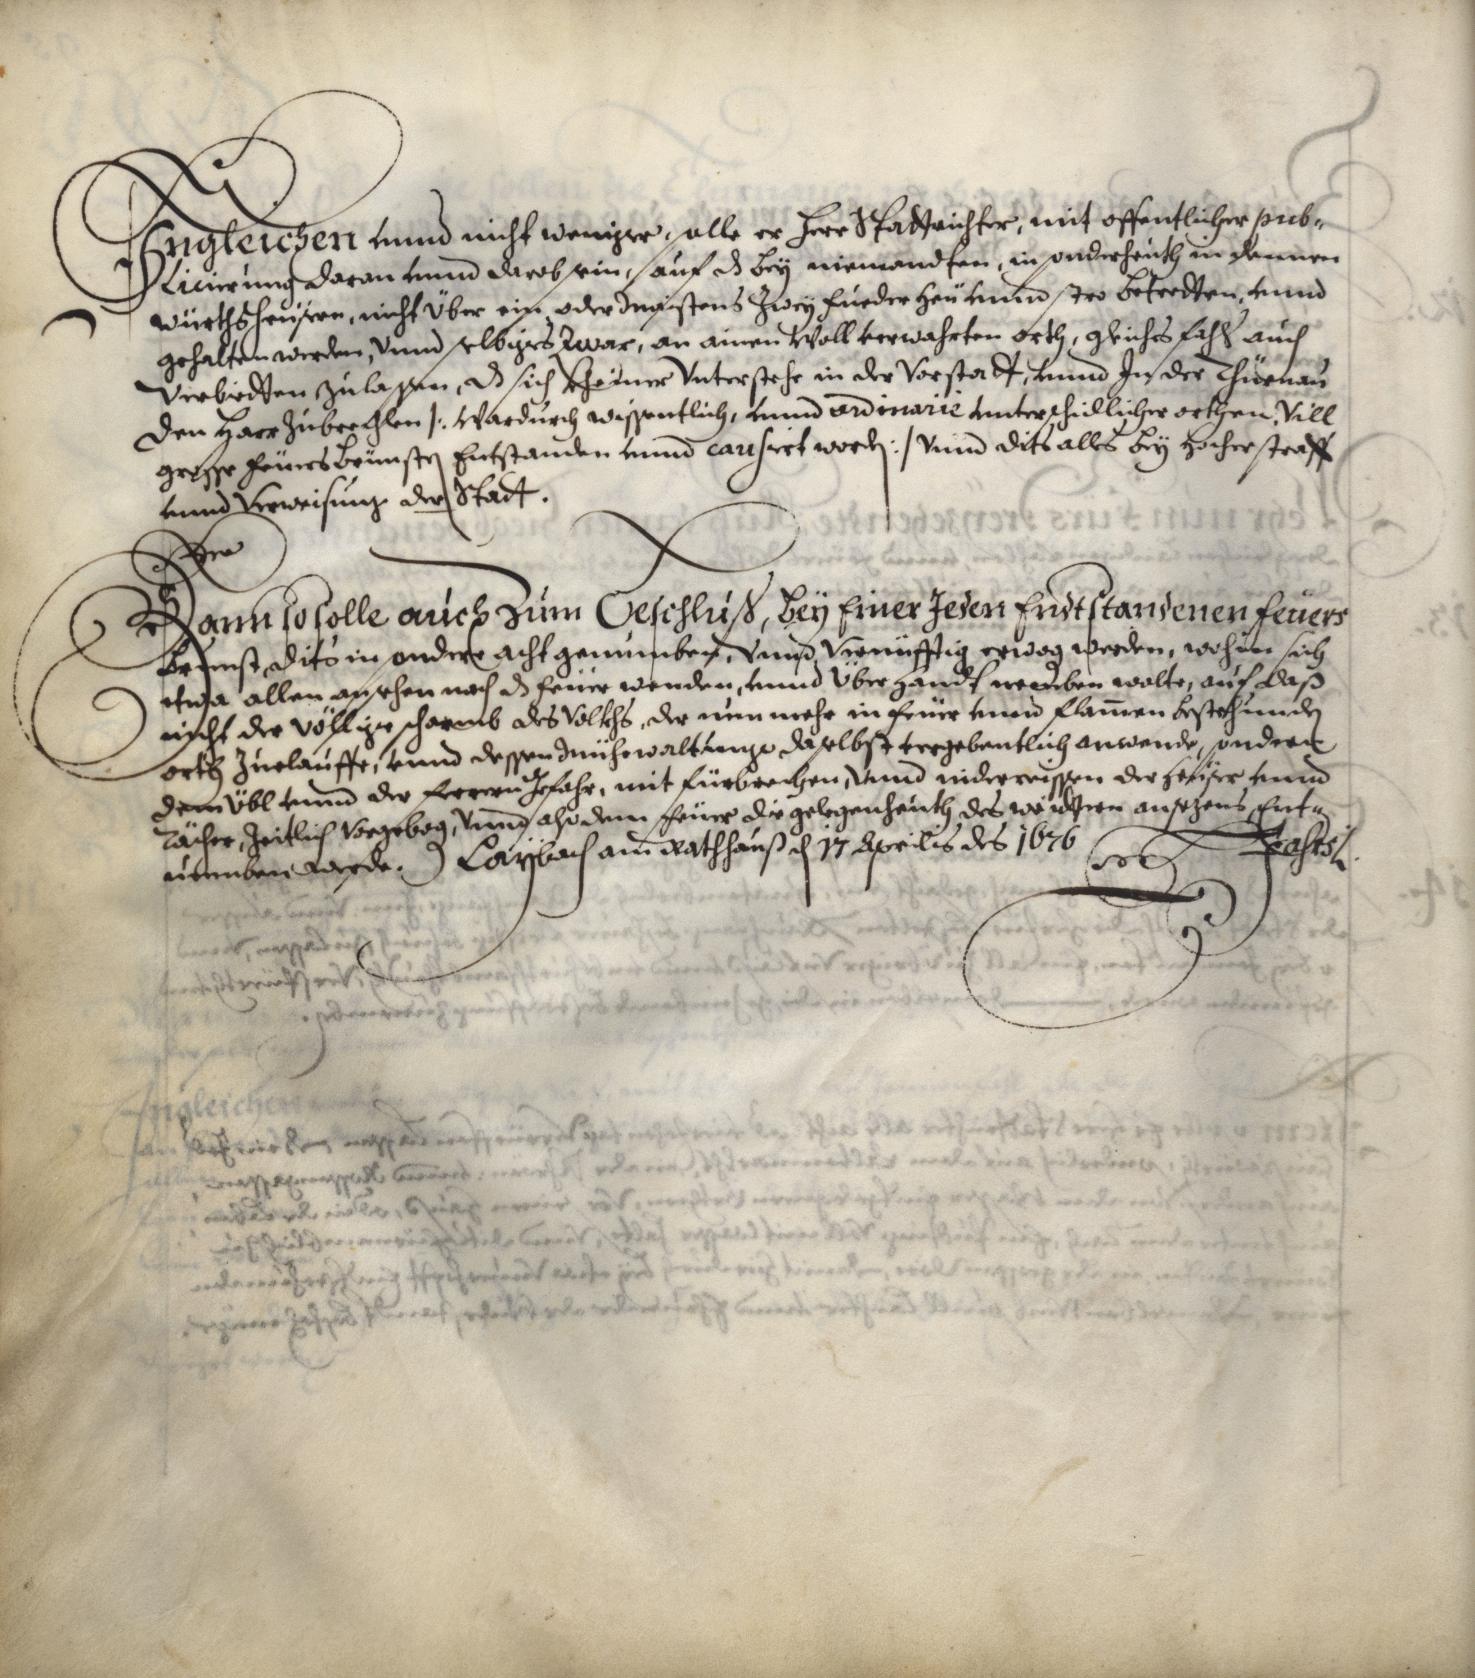 Ingleichen vnnd nicht weniger, solle er Herr Stadtrichter, mit offentlicher pub-
licierung daran vnnd darob sein, auf dz bey niemandten, in sonderheith in dennen
würthsheüsern, nicht über ein, oder maistens zwey fueder heü vnnd stro betretten, vnnd
gehalten werden, vnnd selbiges zwar, an ainen woll verwahrten orth, gleichsfahls auch
Verbietten zulassen, dz sich kheiner vnterstehe in der Vorstadt, vnnd in der Thürnau
den Haar zubrechlen /: wardurch wissentlich, vnnd ordinarie vnterschidlicher orthen, vill
grosse feüersbrünsten entstanden vnnd causirt worden :/ vnnd dits alles bey hocher straff
vnnd verweisung der Stadt.
Dann so solle auch zum Beschluß, bey einer jeden endtstandenen feüers
brunst, dits in sondere acht genumben, vnnd vernünfftig erwogen werden, wohin sich
etwa allen ansehen nach dz feüer wenden, vnnd überhandt nemben wolte, auf daß
nicht der völlige schwarmb des Volkhs, der nunmehr in feüer vnnd flammen bestehunden
orth zuelauffe, vnnd dessen mühewaltung daselbst vergebentlich anwende, sondern
dem übl vnnd der ferrern gefahr, mit fürbrechen, vnnd niderreissen der heüser vnnd
Tächer, zeitlich vorgebogen, vnnd also dem feüer die gelegenheith des weittern ansezens ent-
numben werde. Laybach am Rathhauß den 17 Aprilis des 1676 Jahrs